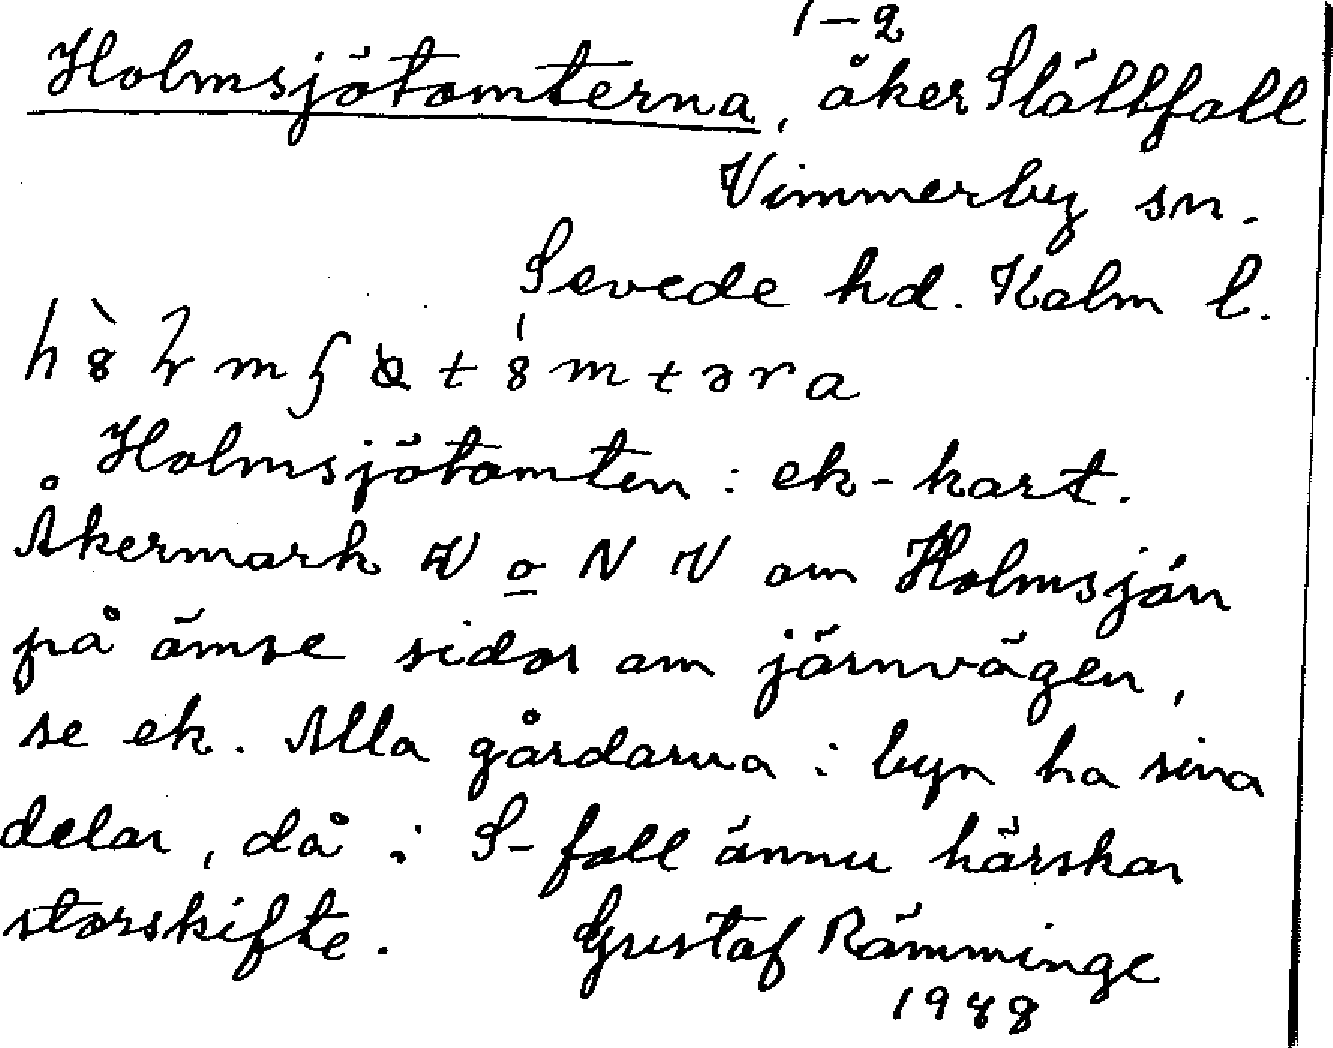 1-2
Holmsjötomterna, åker Slättfall
Vimmerby sn.
Sevede hd. Kalm l.
Holmsjötomten : ek-kart.
Åkermark V o NV om Holmsjön
på ömse sidor om järnvägen,
se ek. Alla gårdarna i byn ha sina
delar, då i S-fall ännu härskar
storskifte. Gustaf Rämminge
1948